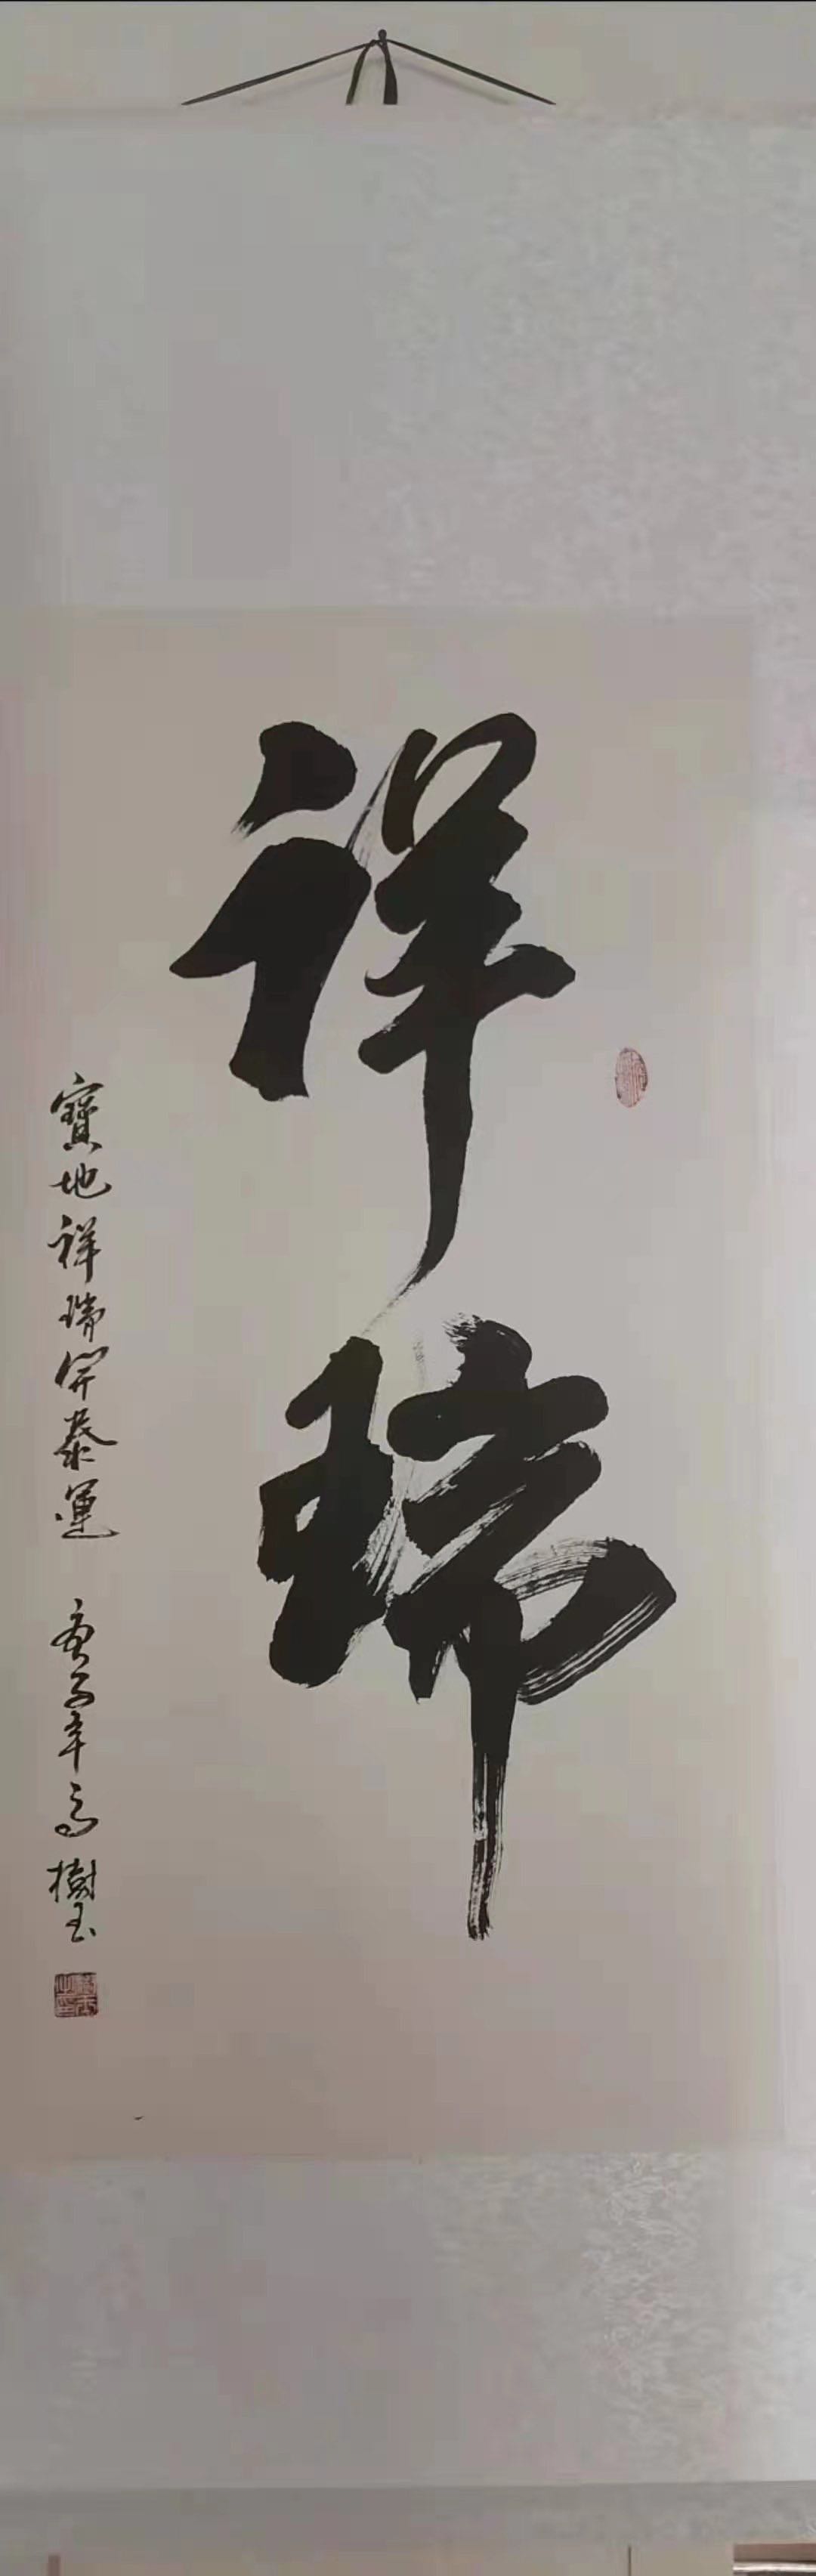 祥瑞
寶地祥瑞開泰運 庚子年 高樹玉